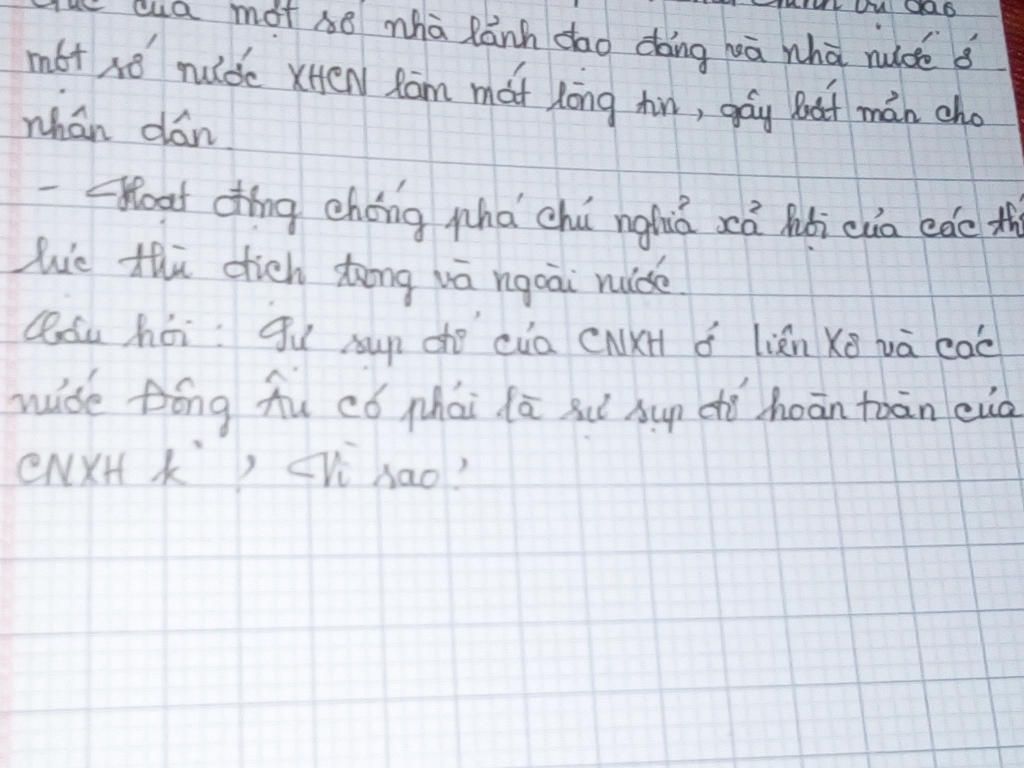 của một số nhà lãnh đạo đảng và nhà nước ở
một số nước XHCN làm mất lòng tin, gây bất mãn cho
nhân dân
- Hoạt động chống phá chủ nghĩa xã hội của các thế
lực thù địch trong và ngoài nước
Câu hỏi: Sự sụp đổ của CNXH ở liên Xô và các
nước Đông Âu có phải là sự sụp đổ hoàn toàn của
CNXH k°, Vì sao?